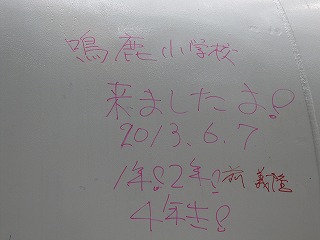 鳴鹿小学校
来ましたよ!
2013.6.7
1年!2年!前 義隆
4年生!